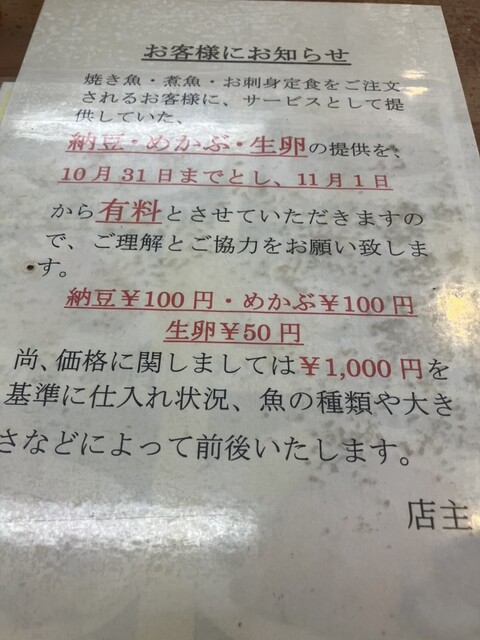 お客様にお知らせ
焼き魚・煮魚・お刺身定食をご注文
されるお客様に、サービスとして提
供していた、
納豆・めかぶ・生卵の提供を、
10月31日までとし、11月1日
から有料とさせていただきますの
で、ご理解とご協力をお願い致しま
す。
納豆￥100円・めかぶ￥100円
生卵￥50円
尚、価格に関しましては￥1,000円を
基準に仕入れ状況、魚の種類や大き
さなどによって前後いたします。
店主